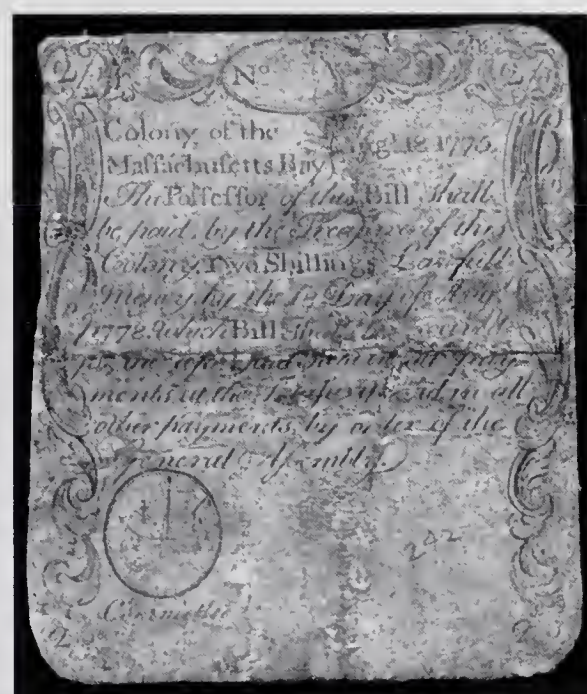 2 2
No
Colony of the Augt. 18. 1775.
Massachusetts Bay
The Possessor of this Bill shall
be paid, by the Treasurer of this
Colony, Two Shillings Lawfull
Money, by the 18 Day of Augt.
1778. which Bill shall be
for the aforesaid Sum in all pay
ments at the and in all
other payments by order of the
General Assembly.
242
Committee
2 2